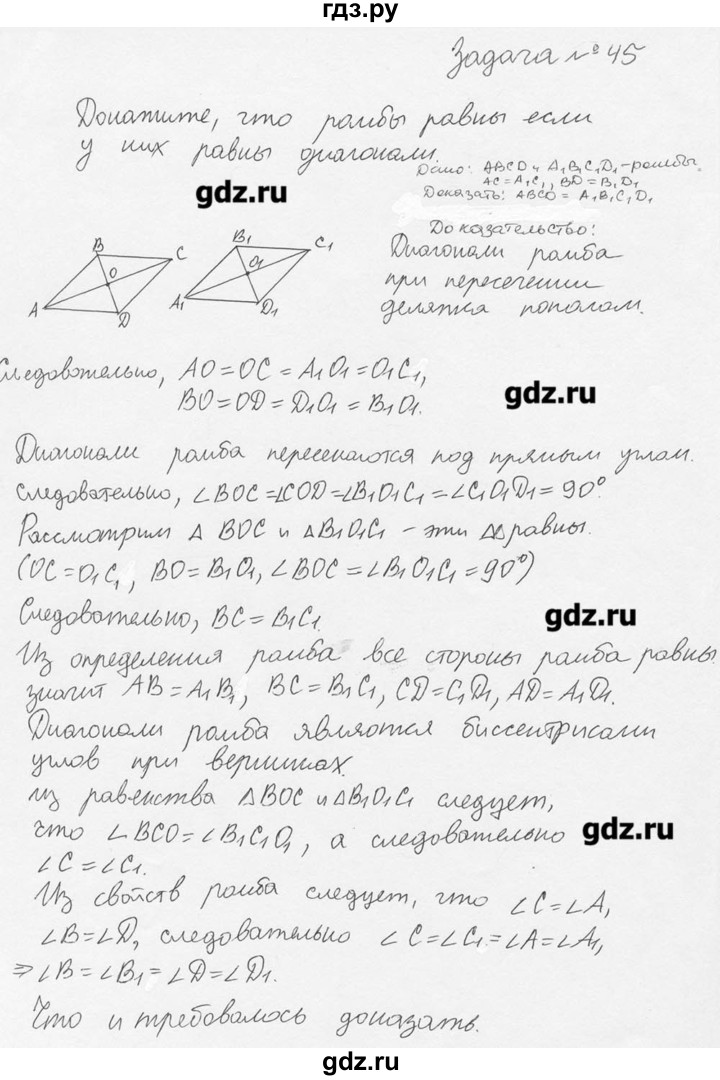 гдз.ру
Задача №45
Докажите, что ромбы равны если
у них равны диагонали.
Дано: ABCD и A₁B₁C₁D₁ - ромбы.
AC = A₁C₁, BD = B₁D₁
Доказать: ABCD = A₁B₁C₁D₁
gdz.ru
Доказательство:
Диагонали ромба
при пересечении
делятся пополам.
B
C
O
A
D
B₁
C₁
O₁
A₁
D₁
Следовательно, AO = OC = A₁O₁ = O₁C₁,
BO = OD = D₁O₁ = B₁O₁.
gdz.ru
Диагонали ромба пересекаются под прямым углом.
Следовательно, ∠BOC = ∠COD = ∠B₁O₁C₁ = ∠C₁O₁D₁ = 90°.
Рассмотрим △ BOC и △B₁O₁C₁ - эти △△ равны.
(OC = O₁C₁, BO = B₁O₁, ∠BOC = ∠B₁O₁C₁ = 90°)
Следовательно, BC = B₁C₁.
gdz.ru
Из определения ромба все стороны ромба равны
значит AB = A₁B₁, BC = B₁C₁, CD = C₁D₁, AD = A₁D₁.
Диагонали ромба являются биссектрисами
углов при вершинах.
Из равенства △BOC и △B₁O₁C₁ следует,
что ∠BCO = ∠B₁C₁O₁, а следовательно
gdz.ru
∠C = ∠C₁.
Из свойств ромба следует, что ∠C = ∠A,
∠B = ∠D, следовательно ∠C = ∠C₁ = ∠A = ∠A₁,
⇒ ∠B = ∠B₁ = ∠D = ∠D₁.
Что и требовалось доказать.
gdz.ru